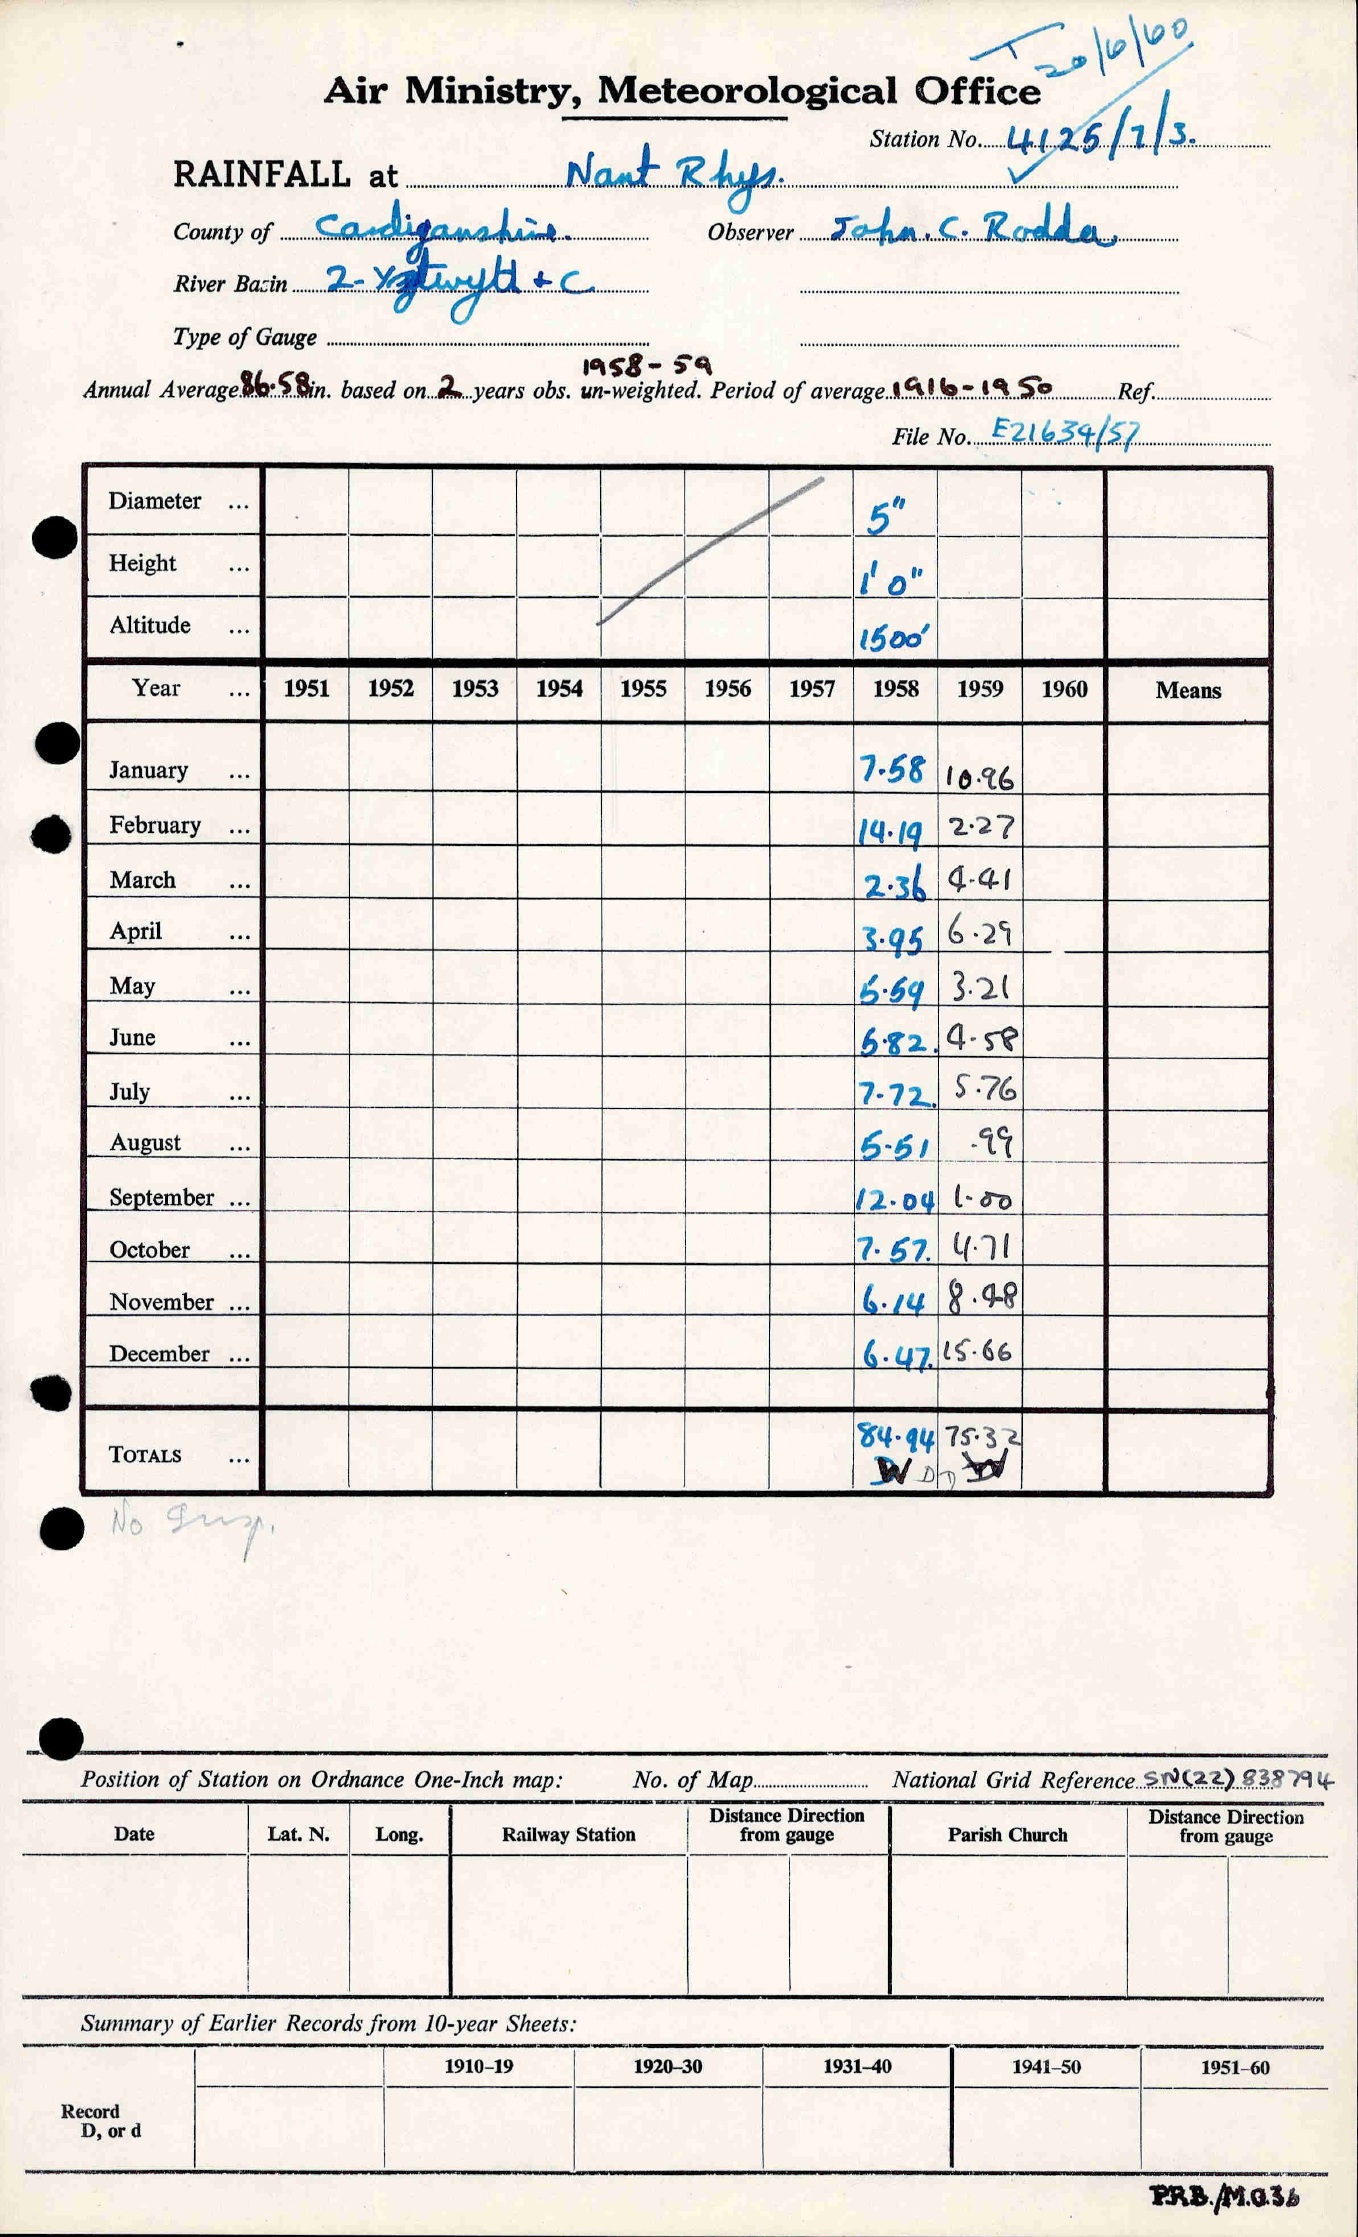 T 20/6/60
Air Ministry, Meteorological Office
Station No. 4125/7/3.
RAINFALL at Nant Rhys.
County of Cardiganshire. Observer John. C. Rodda
River Basin 2- Ystwyth + C
Type of Gauge
1958-59
Annual Average 86.58 in. based on 2 years obs. un-weighted. Period of average 1916-1950 Ref.
File No. E21634/57
Diameter ... 5"
Height ... 1' 0"
Altitude ... 1500'
Year ... 1951 1952 1953 1954 1955 1956 1957 1958 1959 1960 Means
January ... 7.58 10.96
February ... 14.19 2.27
March ... 2.36 4.41
April ... 3.95 6.29
May ... 5.59 3.21
June ... 5.82. 4.58
July ... 7.72. 5.76
August ... 5.51 .99
September ... 12.04 1.00
October ... 7.57. 4.71
November ... 6.14 8.48
December ... 6.47. 15.66
TOTALS ... 84.94 75.32
No Insp.
Position of Station on Ordnance One-Inch map: No. of Map National Grid Reference SN(22) 838794
Date Lat. N. Long. Railway Station Distance Direction from gauge Parish Church Distance Direction from gauge
Summary of Earlier Records from 10-year Sheets:
1910–19 1920–30 1931–40 1941–50 1951–60
Record
D, or d
P.R.B./M.O.36